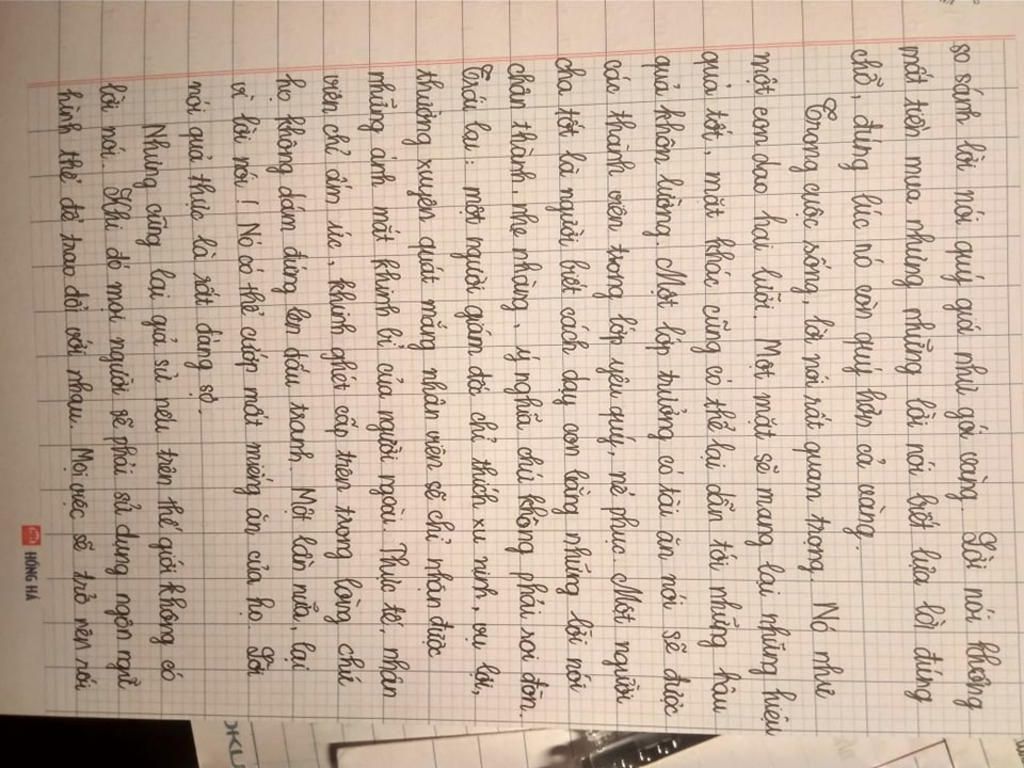 so sánh lời nói quý giá như gói vàng. Lời nói không
mất tiền mua nhưng những lời nói biết lựa lời đúng
chỗ, đúng lúc nó còn quý hơn cả vàng.
Trong cuộc sống, lời nói rất quan trọng. Nó như
một con dao hai lưỡi. Một mặt sẽ mang lại những hiệu
quả tốt, mặt khác cũng có thể lại dẫn tới những hậu
quả khôn lường. Một lớp trưởng có tài ăn nói sẽ được
các thành viên trong lớp yêu quý, nể phục. Một người
cha tốt là người biết cách dạy con bằng những lời nói
chân thành, nhẹ nhàng, ý nghĩa chứ không phải roi đòn.
Trái lại: một người giám đốc chỉ thích xu nịnh, vụ lợi,
thường xuyên quát mắng nhân viên sẽ chỉ nhận được
những ánh mắt khinh bỉ của người ngoài. Thực tế, nhân
viên chỉ ấm ức, khinh ghét cấp trên trong lòng chứ
họ không dám đứng lên đấu tranh. Một lần nữa, lại
vì lời nói! Nó có thể cướp mất miếng ăn của họ. Lời
nói quả thực là rất đáng sợ.
Nhưng cũng lại giả sử nếu trên thế giới không có
lời nói. Khi đó mọi người sẽ phải sử dụng ngôn ngữ
hình thể để trao đổi với nhau. Mọi việc sẽ trở nên rối
HỒNG HÀ
OKU